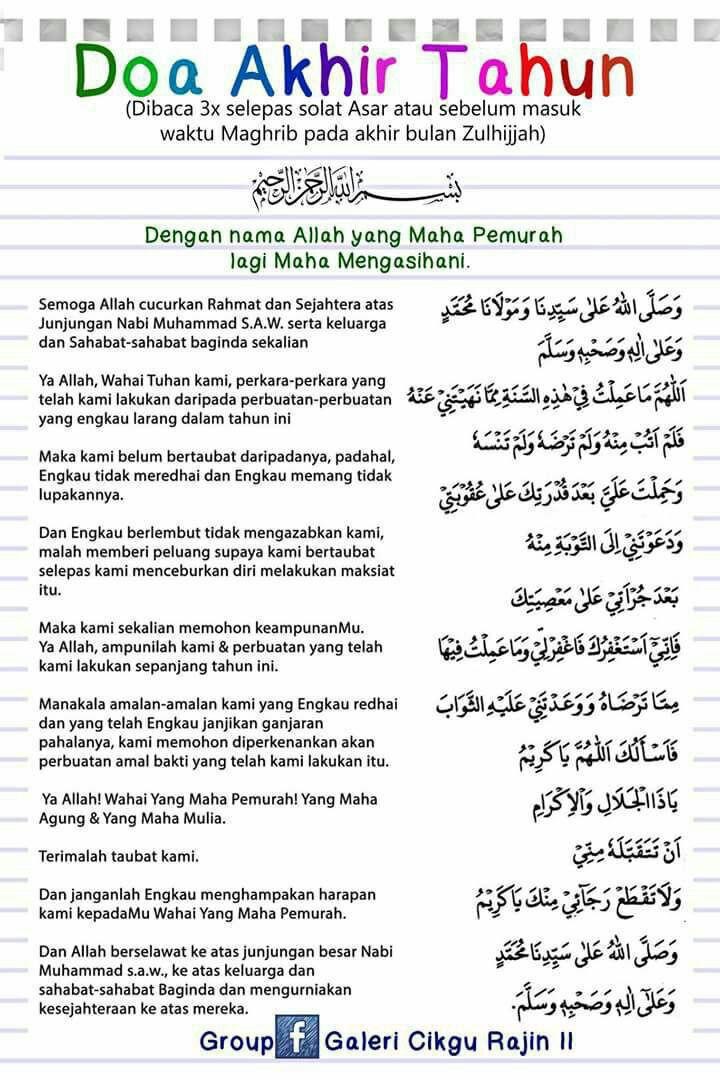 Doa Akhir Tahun
(Dibaca 3x selepas solat Asar atau sebelum masuk
waktu Maghrib pada akhir bulan Zulhijjah)
بِسْمِ اللهِ الرَّحْمٰنِ الرَّحِيْمِ
Dengan nama Allah yang Maha Pemurah
lagi Maha Mengasihani.
Semoga Allah cucurkan Rahmat dan Sejahtera atas
Junjungan Nabi Muhammad S.A.W. serta keluarga
dan Sahabat-sahabat baginda sekalian
Ya Allah, Wahai Tuhan kami, perkara-perkara yang
telah kami lakukan daripada perbuatan-perbuatan
yang engkau larang dalam tahun ini
Maka kami belum bertaubat daripadanya, padahal,
Engkau tidak meredhai dan Engkau memang tidak
lupakannya.
Dan Engkau berlembut tidak mengazabkan kami,
malah memberi peluang supaya kami bertaubat
selepas kami menceburkan diri melakukan maksiat
itu.
Maka kami sekalian memohon keampunanMu.
Ya Allah, ampunilah kami & perbuatan yang telah
kami lakukan sepanjang tahun ini.
Manakala amalan-amalan kami yang Engkau redhai
dan yang telah Engkau janjikan ganjaran
pahalanya, kami memohon diperkenankan akan
perbuatan amal bakti yang telah kami lakukan itu.
Ya Allah! Wahai Yang Maha Pemurah! Yang Maha
Agung & Yang Maha Mulia.
Terimalah taubat kami.
Dan janganlah Engkau menghampakan harapan
kami kepadaMu Wahai Yang Maha Pemurah.
Dan Allah berselawat ke atas junjungan besar Nabi
Muhammad s.a.w., ke atas keluarga dan
sahabat-sahabat Baginda dan mengurniakan
kesejahteraan ke atas mereka.
وَصَلَّى اللهُ عَلٰى سَيِّدِنَا وَمَوْلَانَا مُحَمَّدٍ
وَعَلٰى اٰلِهٖ وَصَحْبِهٖ وَسَلَّمَ
اَللّٰهُمَّ مَا عَمِلْتُ فِيْ هٰذِهِ السَّنَةِ مِمَّا نَهَيْتَنِيْ عَنْهُ
فَلَمْ اَتُبْ مِنْهُ وَلَمْ تَرْضَهُ وَلَمْ تَنْسَهُ
وَحَمِلْتَ عَلَيَّ بَعْدَ قُدْرَتِكَ عَلٰى عُقُوْبَتِيْ
وَدَعَوْتَنِيْ اِلَى التَّوْبَةِ مِنْهُ
بَعْدَ جُرْاَتِيْ عَلٰى مَعْصِيَتِكَ
فَاِنِّيْ اَسْتَغْفِرُكَ فَاغْفِرْلِيْ وَمَا عَمِلْتُ فِيْهَا
مِمَّا تَرْضَاهُ وَوَعَدْتَنِيْ عَلَيْهِ الثَّوَابَ
فَاَسْاَلُكَ اَللّٰهُمَّ يَا كَرِيْمُ
يَاذَا الْجَلَالِ وَالْاِكْرَامِ
اَنْ تَتَقَبَّلَهُ مِنِّيْ
وَلَا تَقْطَعْ رَجَائِيْ مِنْكَ يَا كَرِيْمُ
وَصَلَّى اللهُ عَلٰى سَيِّدِنَا مُحَمَّدٍ
وَعَلٰى اٰلِهٖ وَصَحْبِهٖ وَسَلَّمَ.
Group f Galeri Cikgu Rajin II